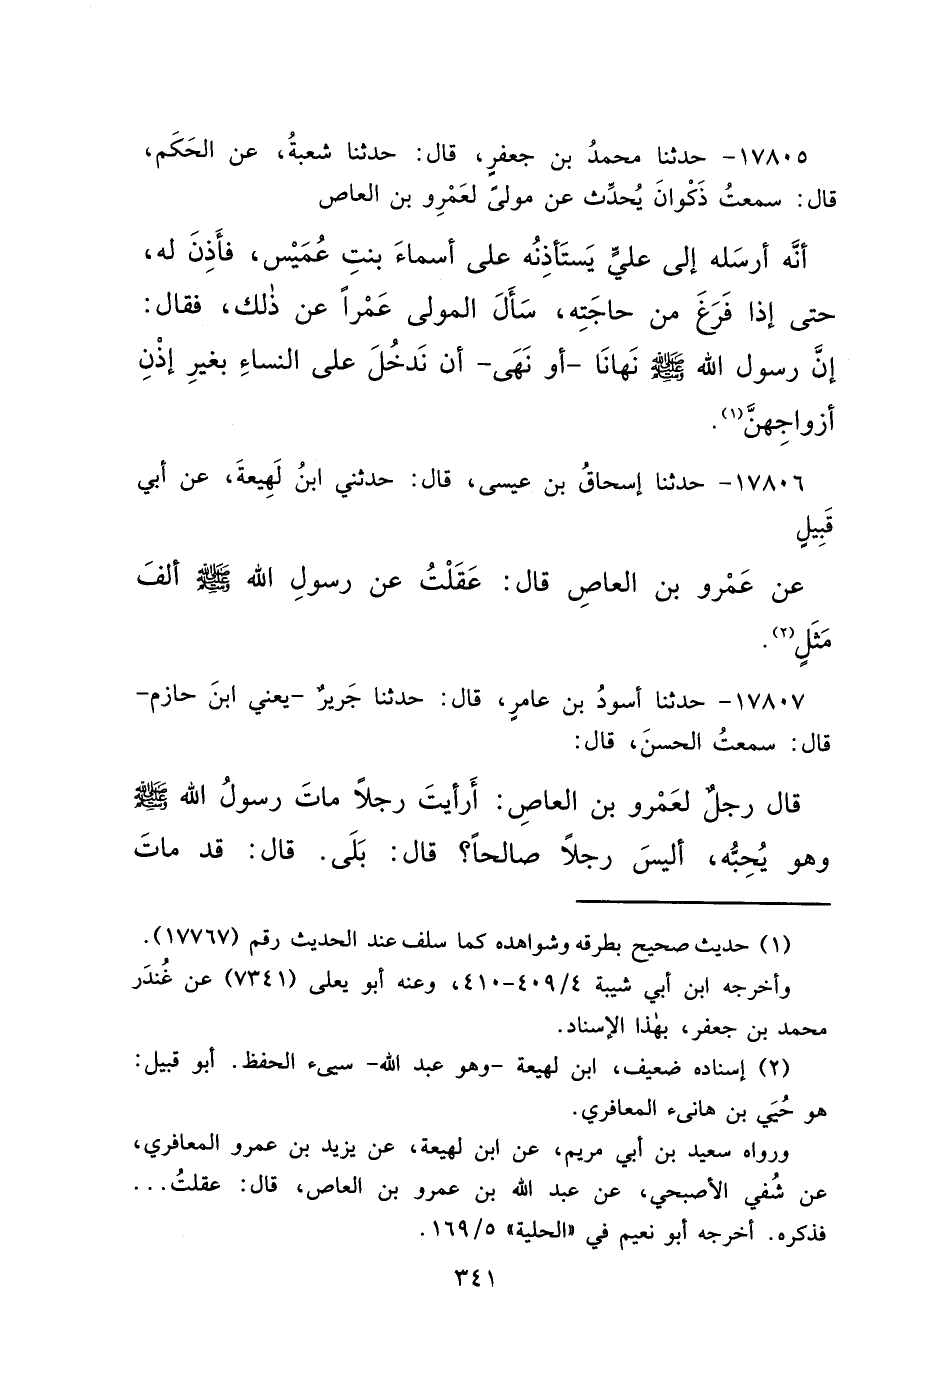 ١٧٨٠٥- حدثنا محمدُ بن جعفرٍ، قال: حدثنا شعبةُ، عن الحَكَم،
قال: سمعتُ ذَكْوانَ يُحدِّث عن مولىً لعَمْرِو بن العاص
أنَّه أرسَله إلى عليٍّ يَستَأذِنُه على أسماءَ بنتِ عُمَيْس، فأَذِنَ له،
حتى إذا فَرَغَ من حاجَتِه، سَأَلَ المولى عَمْراً عن ذٰلك، فقال:
إنَّ رسول الله ﷺ نَهانَا -أو نَهَى- أن نَدخُلَ على النساءِ بغيرِ إذْنِ
أزواجِهنَّ(١).
١٧٨٠٦- حدثنا إسحاقُ بن عيسى، قال: حدثني ابنُ لَهِيعةَ، عن أبي
قَبِيلٍ
عن عَمْرو بن العاصِ قال: عَقَلْتُ عن رسولِ الله ﷺ ألفَ
مَثَلٍ(٢).
١٧٨٠٧- حدثنا أسودُ بن عامرٍ، قال: حدثنا جَريرٌ -يعني ابنَ حازم-
قال: سمعتُ الحسنَ، قال:
قال رجلٌ لعَمْرو بن العاصِ: أَرأيتَ رجلاً ماتَ رسولُ الله ﷺ
وهو يُحِبُّه، أليسَ رجلاً صالحاً؟ قال: بَلَى. قال: قد ماتَ
(١) حديث صحيح بطرقه وشواهده كما سلف عند الحديث رقم (١٧٧٦٧).
وأخرجه ابن أبي شيبة ٤٠٩/٤-٤١٠، وعنه أبو يعلى (٧٣٤١) عن غُندَر
محمد بن جعفر، بهٰذا الإسناد.
(٢) إسناده ضعيف، ابن لهيعة -وهو عبد الله- سيىء الحفظ. أبو قبيل:
هو حُيَي بن هانىء المعافري.
ورواه سعيد بن أبي مريم، عن ابن لهيعة، عن يزيد بن عمرو المعافري،
عن شُفي الأصبحي، عن عبد الله بن عمرو بن العاص، قال: عقلتُ...
فذكره. أخرجه أبو نعيم في «الحلية» ١٦٩/٥.
٣٤١